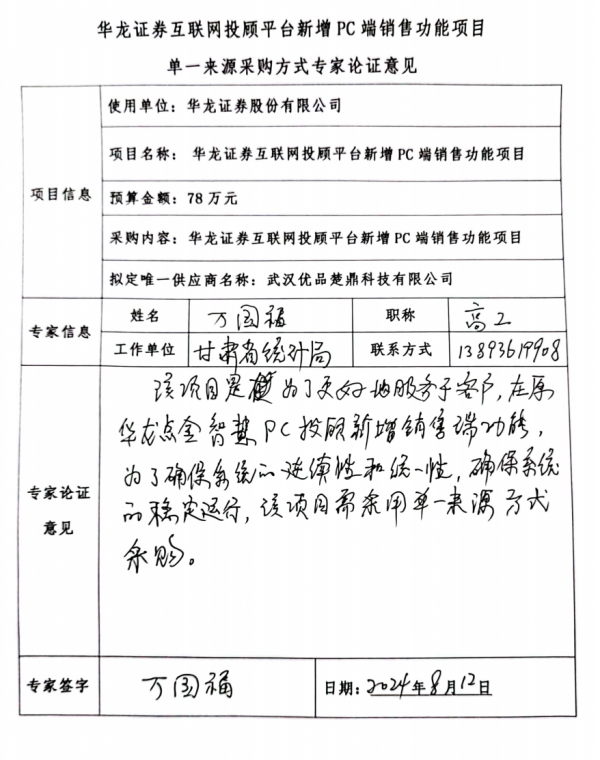 华龙证券互联网投顾平台新增 PC 端销售功能项目
单一来源采购方式专家论证意见
项目信息
使用单位：华龙证券股份有限公司
项目名称： 华龙证券互联网投顾平台新增 PC 端销售功能项目
预算金额：78 万元
采购内容：华龙证券互联网投顾平台新增 PC 端销售功能项目
拟定唯一供应商名称：武汉优品楚鼎科技有限公司
专家信息
姓名 万国福 职称 高工
工作单位 甘肃省统计局 联系方式 13893619908
专家论证
意见
该项目是 为了更好地服务于客户，在原
华龙点金智慧PC投顾新增销售端功能，
为了确保系统的连续性和统一性，确保系统
的稳定运行，该项目需采用单一来源方式
采购。
专家签字 万国福 日期：2024年8月12日